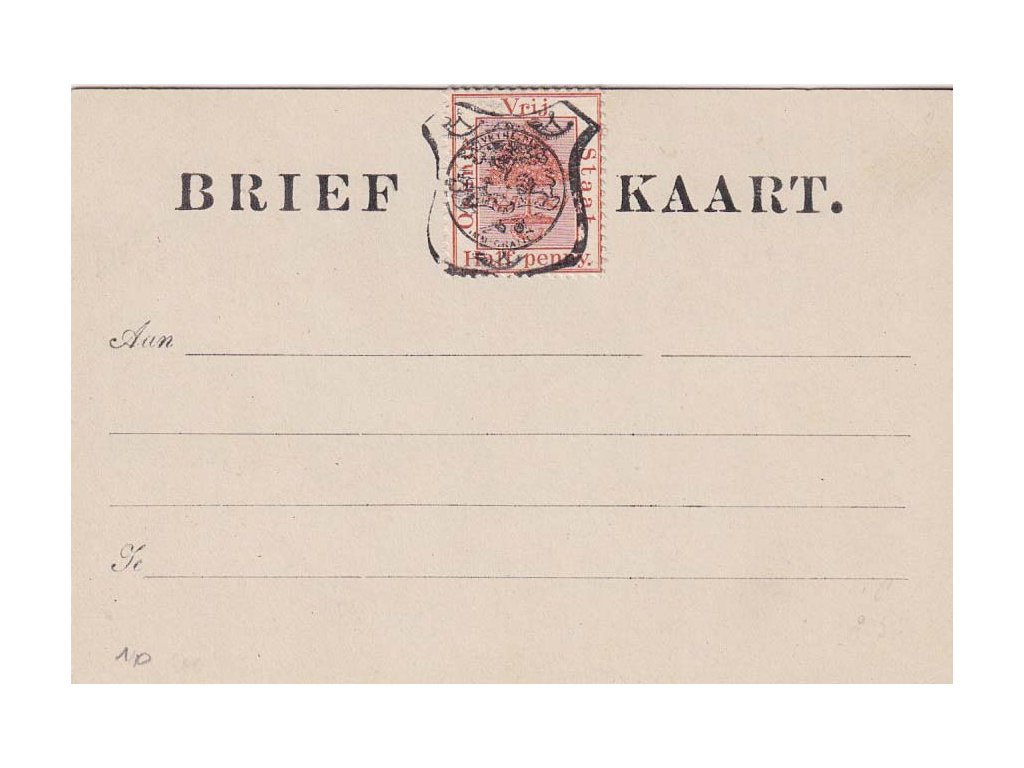 Vrij
BRIEF KAART.
Staat
Half penny.
Aan
Te